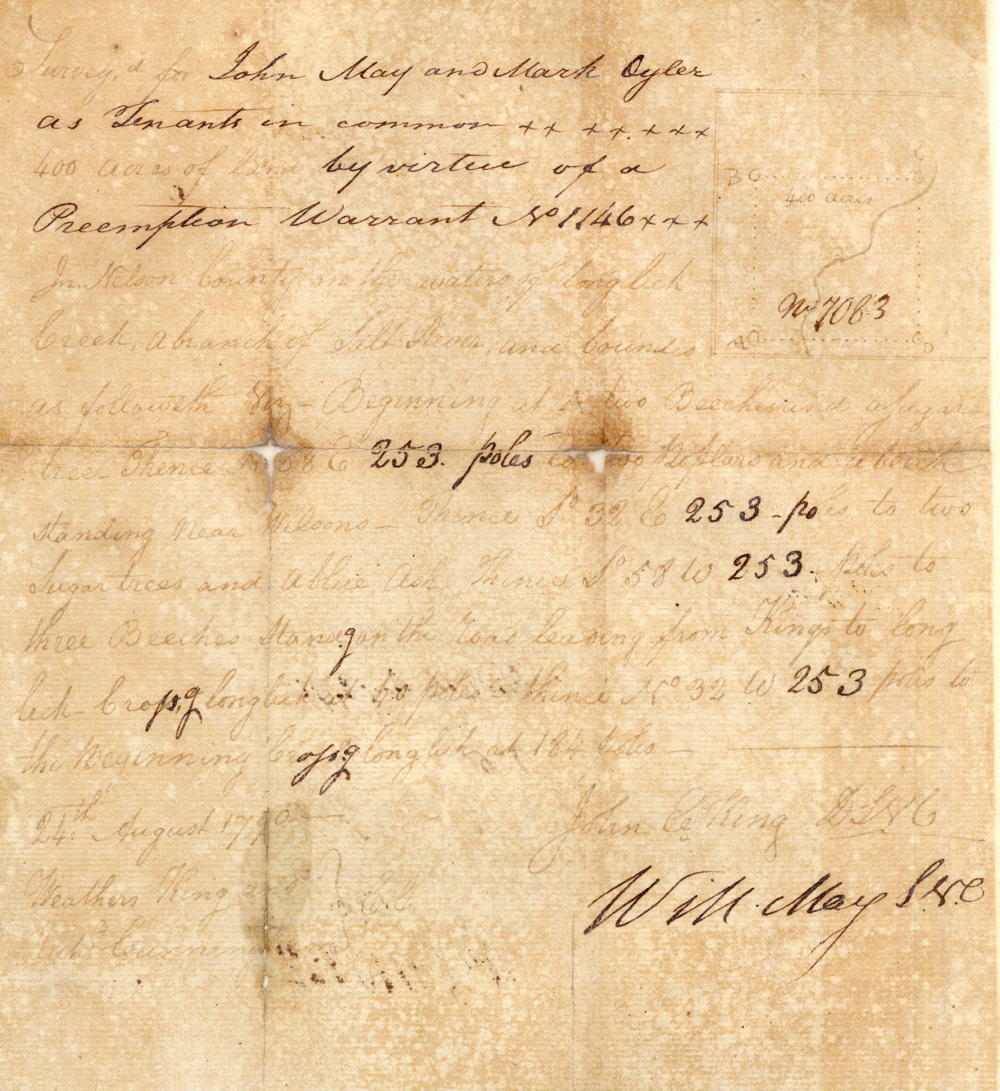 Survey,d for John May and Mark Oyler
as Tenants in common ++ ++ + ++
400 acres of land by virtue of a
Preemption Warrant No 1146 +++
In Nelson County on the waters of long lick
Creek a branch of Salt River, and bounds
as followeth Viz - Beginning at two Beeches and a Sugar
tree Thence No 58 E 253. poles to two Poplars and a beech
Standing near Wilsons - Thence So 32 E 253 - poles to two
Sugar trees and a blue Ash Thence So 58 W 253. Poles to
three Beeches Standg on the Road leading from Kings to long
lick Crossg long lick at 40 poles thence No 32 W 253 poles to
the Beginning Crossg long lick at 184 poles
24th August 17
John King D.S.N.C
Weathers King and
Will. May S.N.C
B
400 acres
No 7083
A
D